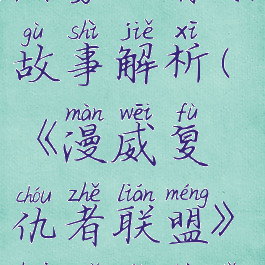 gù shì jiě xī
故事解析(
màn wēi fù
《漫威复
chóu zhě lián méng
仇者联盟》